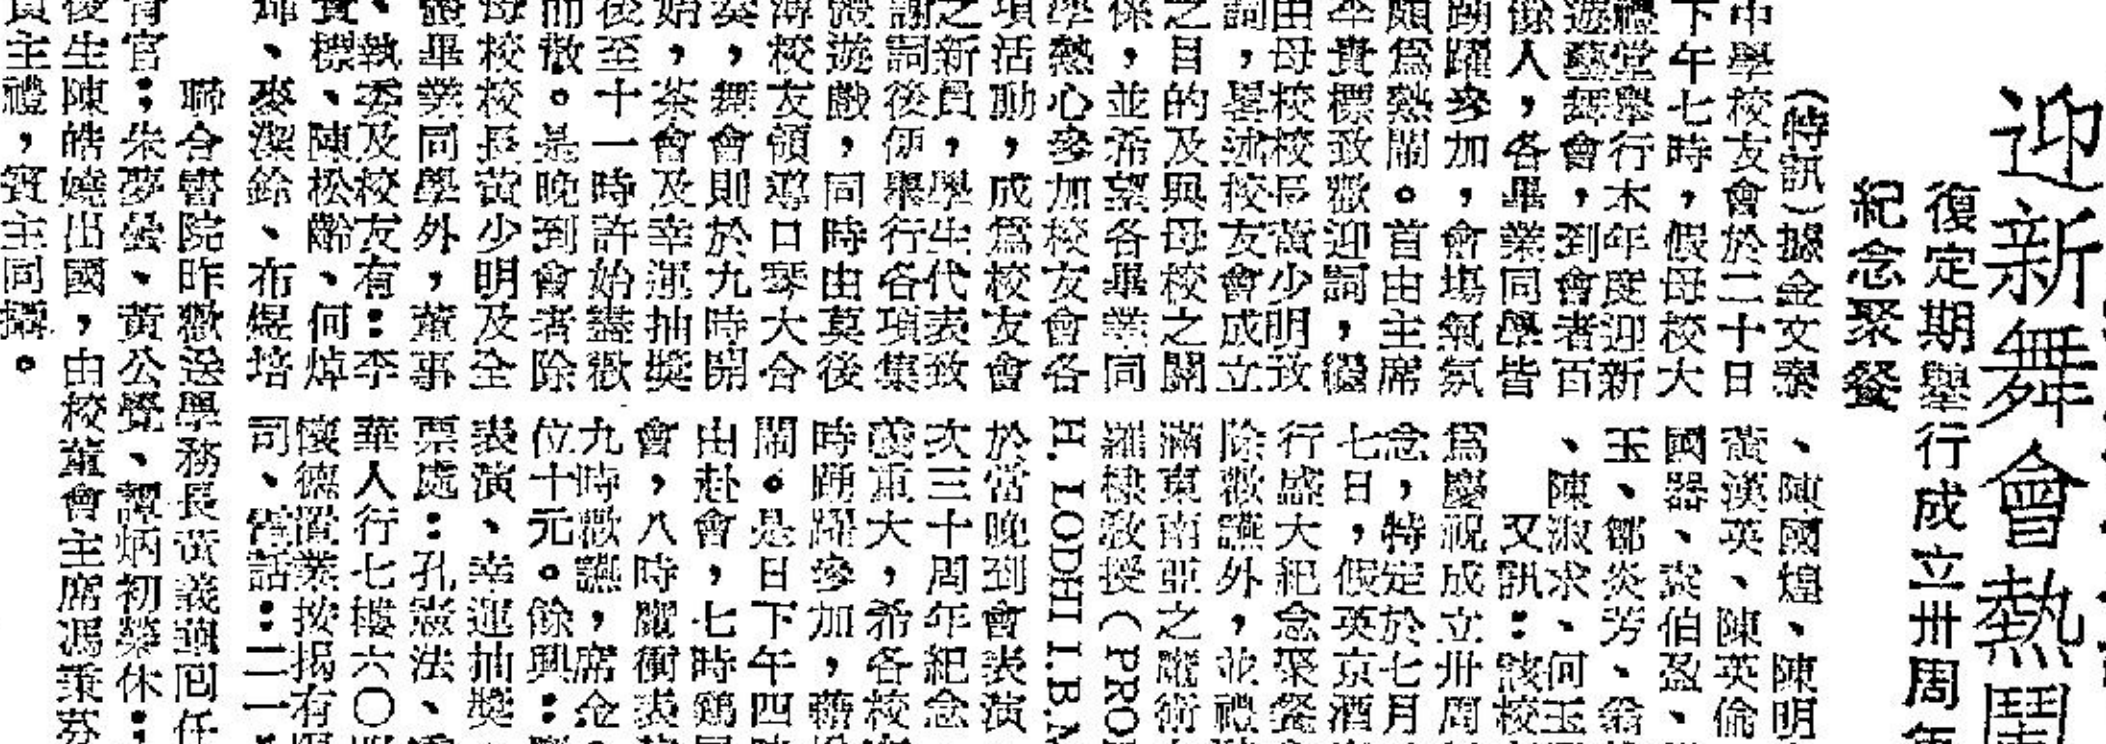 迎新舞會熱鬧
復定期舉行成立卅周年
紀念聚餐
（特訊）據金文泰
中學校友會於二十日
下午七時，假母校大
禮堂舉行本年度迎新
遊藝舞會，到會者百
餘人，各畢業同學皆
踴躍參加，會場氣氛
頗為熱鬧。首由主席
李貴標致歡迎詞，繼
由母校校長黃少明致
詞，畧述校友會成立
之目的及與母校之關
係，並希望各畢業同
學熱心參加校友會各
項活動，成為校友會
之新員，學生代表致
謝詞後便舉行各項集
體遊戲，同時由莫後
薄校友領導口琴大合
奏，舞會則於九時開
始，茶會及幸運抽獎
後至十一時許始盡歡
而散。是晚到會者除
母校校長黃少明及全
體畢業同學外，董事
、執委及校友有：李
貴標、陳松齡、何焯
、麥潔鈴、布焜培
、陳國煌、陳明
黃漢英、陳英倫
國器、裴伯盈、
玉、鄒炎芳、翁
、陳淑求、何玉
又訊：該校
為慶祝成立卅周
念，特定於七月
七日，假英京酒
行盛大紀念聚餐
除歡讌外，並禮
滿東南亞之魔術
羅棣教授（PRO
H. LODHI I.B.A
於當晚到會表演
次三十周年紀念
義重大，希各校
時踴躍參加，藉
關。是日下午四
由赴會，七時鷄
會，八時魔術表
九時歡讌，席金
位十元。餘興：
表演、幸運抽獎
票處：孔憲法、
華人行七樓六〇
懷德置業按揭有
司、電話：二一
聯合書院昨歡送學務長黃義
回任
官：朱夢曇、黃公覺、譚炳初榮休：
後生陳皓嬈出國，由校董會主席馮秉芬
主禮，賓主同攝。